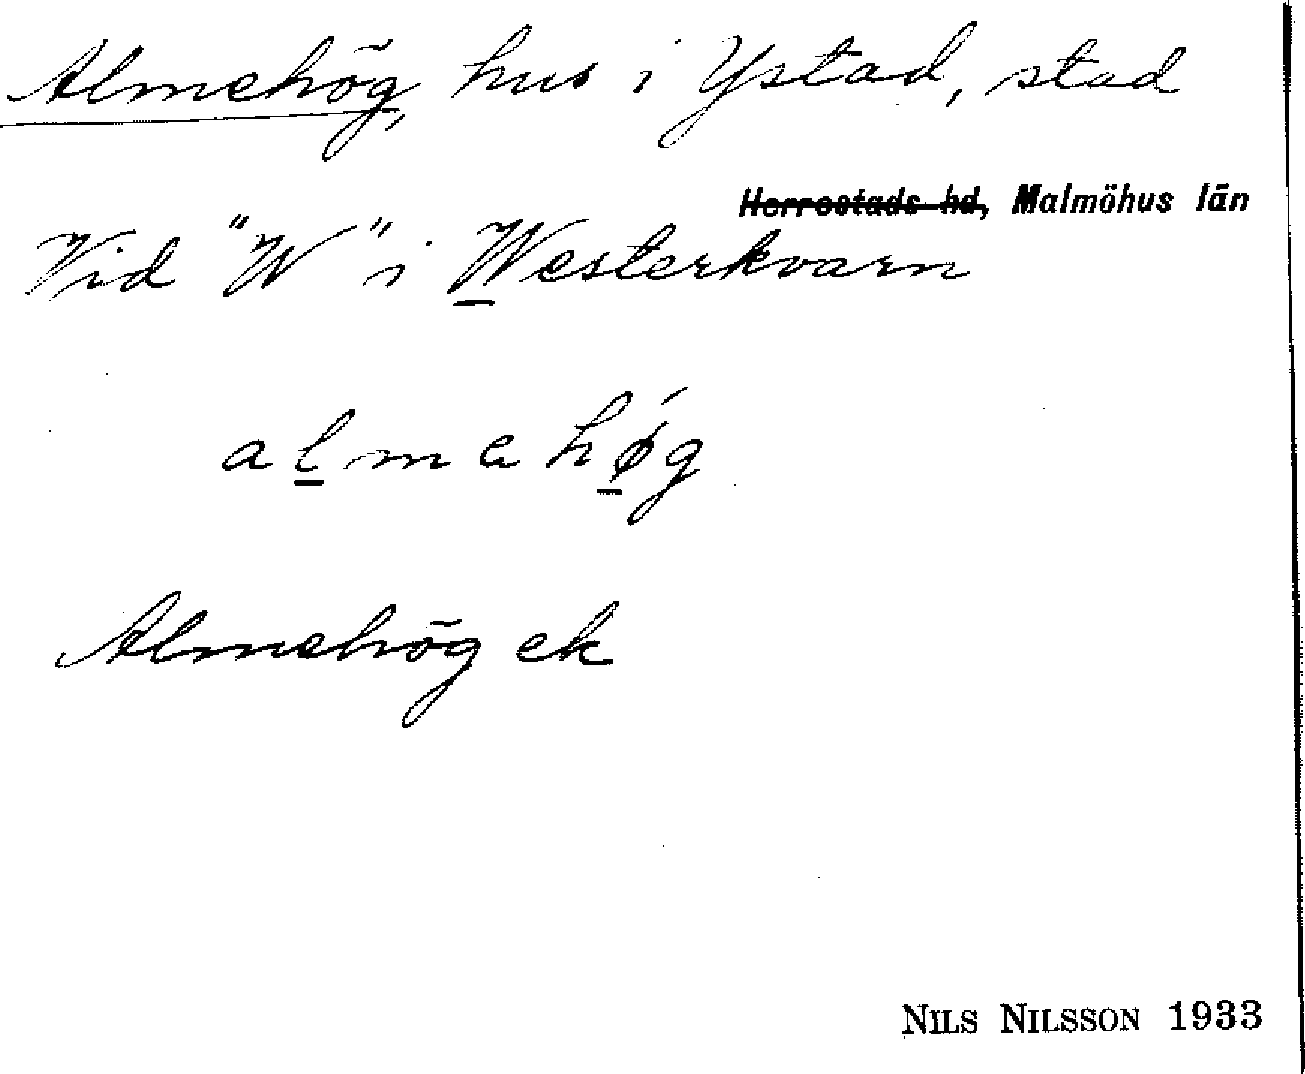 Almehög, hus i Ystad, stad
Herrestads hd, Malmöhus län
Vid "W" i Westerkvarn
almahøg
Almehög ek
NILS NILSSON 1933